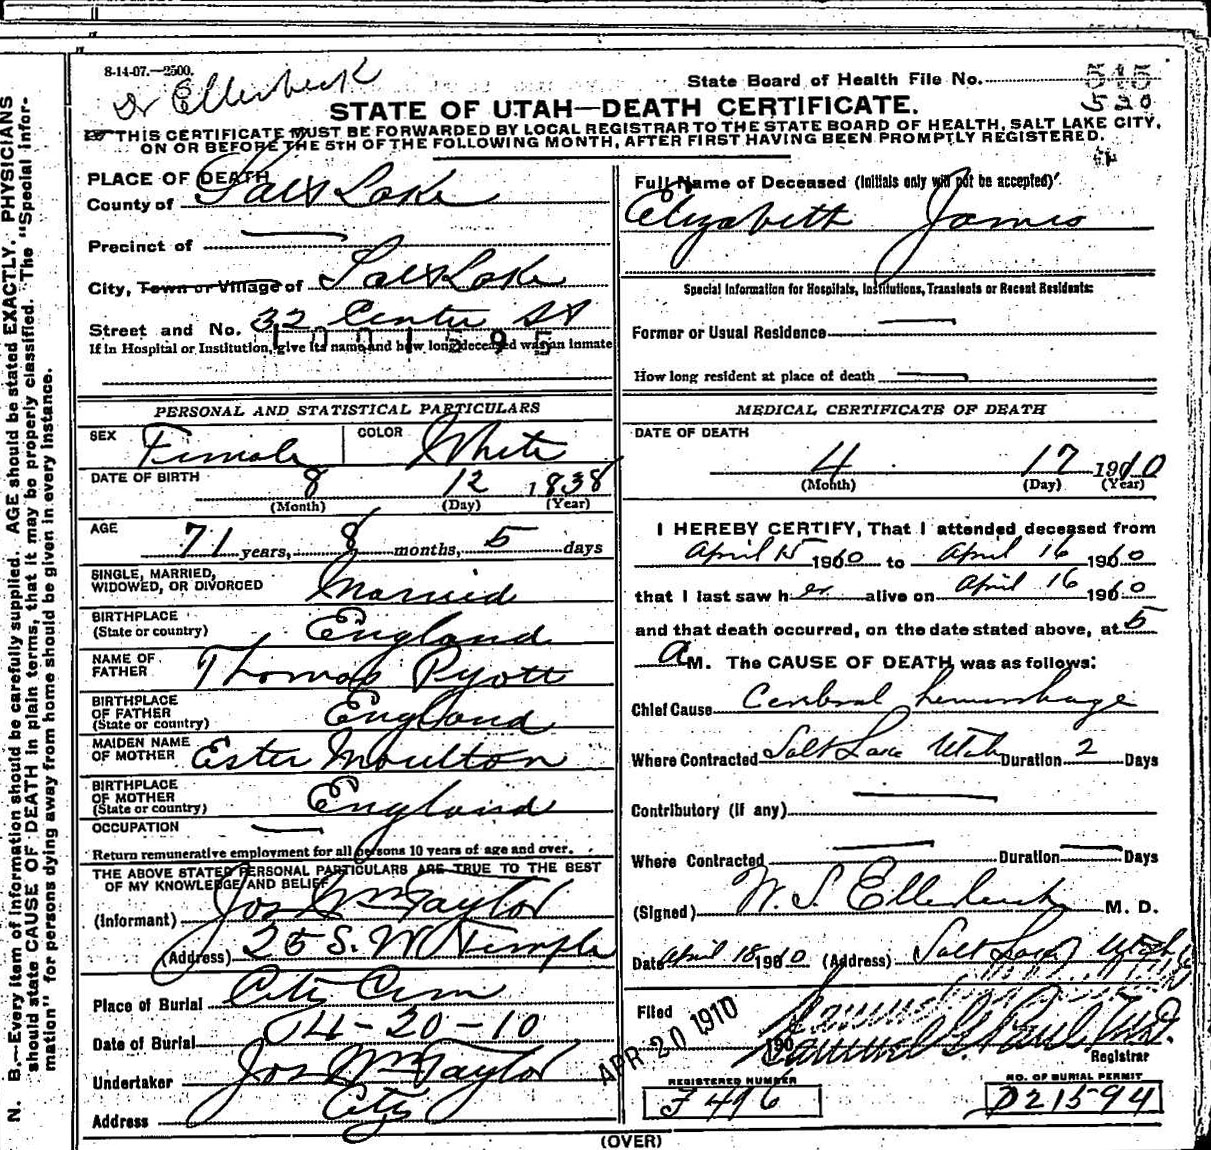 8-14-07.—2500.
Dr Ellerbeck
State Board of Health File No. 515
520
STATE OF UTAH—DEATH CERTIFICATE.
THIS CERTIFICATE MUST BE FORWARDED BY LOCAL REGISTRAR TO THE STATE BOARD OF HEALTH, SALT LAKE CITY,
ON OR BEFORE THE 5TH OF THE FOLLOWING MONTH, AFTER FIRST HAVING BEEN PROMPTLY REGISTERED.
PLACE OF DEATH
County of Salt Lake
Precinct of —
City, Town or Village of Salt Lake
Street and No. 32 Center St
1001595
If in Hospital or Institution, give its name and how long deceased was an inmate
Full Name of Deceased (Initials only will not be accepted)
Elizabeth James
Special Information for Hospitals, Institutions, Transients or Recent Residents:
Former or Usual Residence —
How long resident at place of death —
PERSONAL AND STATISTICAL PARTICULARS
SEX Female COLOR White
DATE OF BIRTH 8 12 1838
(Month) (Day) (Year)
AGE 71 years, 8 months, 5 days
SINGLE, MARRIED,
WIDOWED, OR DIVORCED Married
BIRTHPLACE
(State or country) England
NAME OF
FATHER Thomas Pyott
BIRTHPLACE
OF FATHER
(State or country) England
MAIDEN NAME
OF MOTHER Ester Moulton
BIRTHPLACE
OF MOTHER
(State or country) England
OCCUPATION —
Return remunerative employment for all persons 10 years of age and over.
THE ABOVE STATED PERSONAL PARTICULARS ARE TRUE TO THE BEST
OF MY KNOWLEDGE AND BELIEF
(Informant) Jos Wm Taylor
(Address) 25 S. W Temple
Place of Burial City Cem
Date of Burial 4-20-10
Undertaker Jos Wm Taylor
Address City
MEDICAL CERTIFICATE OF DEATH
DATE OF DEATH
4 17 1910
(Month) (Day) (Year)
I HEREBY CERTIFY, That I attended deceased from
April 15 1910 to April 16 1910
that I last saw her alive on April 16 1910
and that death occurred, on the date stated above, at 5
A M. The CAUSE OF DEATH was as follows:
Chief Cause Cerebral hemorrhage
Where Contracted Salt Lake Utah Duration 2 Days
Contributory (if any) —
Where Contracted — Duration — Days
(Signed) W. S. Ellerbeck M. D.
Date April 18 1910 (Address) Salt Lake Utah
Filed APR 20 1910 190
Samuel G. Paul, M.D.
Registrar
REGISTERED NUMBER
J 496
NO. OF BURIAL PERMIT
D21594
(OVER)
N. B.—Every item of information should be carefully supplied. AGE should be stated EXACTLY. PHYSICIANS
should state CAUSE OF DEATH in plain terms, that it may be properly classified. The "Special Infor-
mation" for persons dying away from home should be given in every instance.